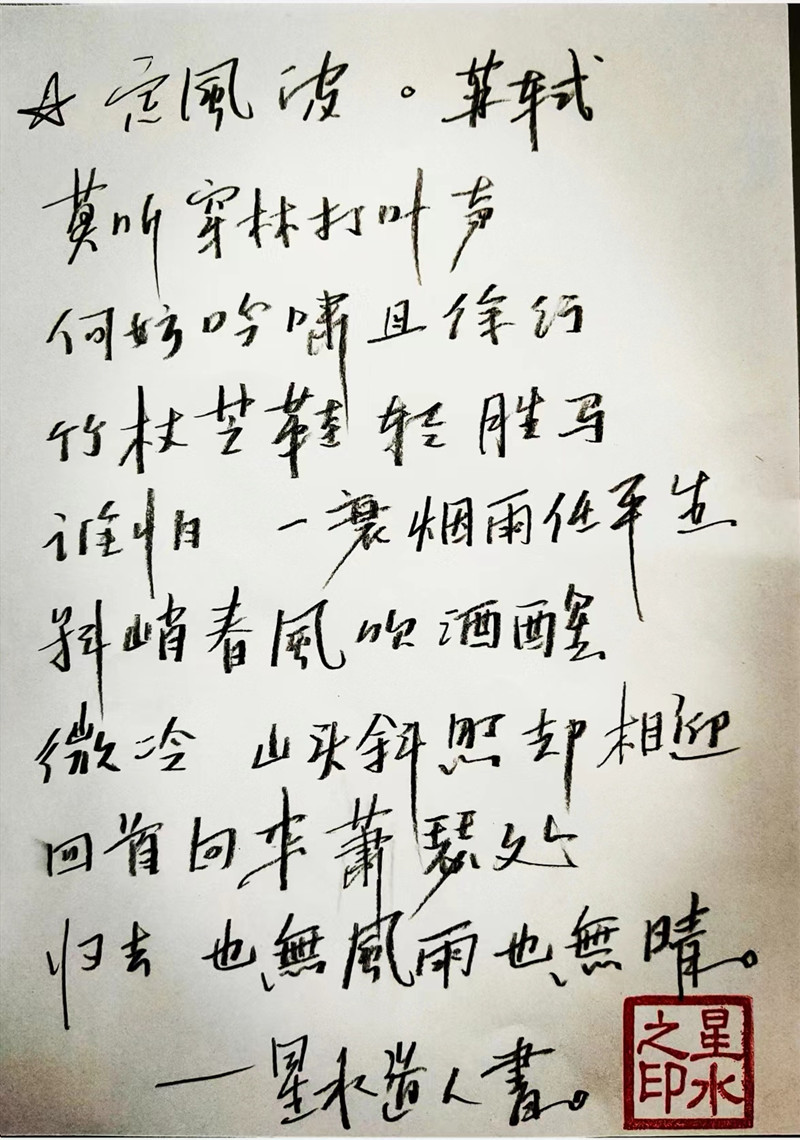 ☆ 定風波。苏轼
莫听穿林打叶声
何妨吟啸且徐行
竹杖芒鞋轻胜马
谁怕 一蓑烟雨任平生
料峭春風吹酒醒
微冷 山头斜照却相迎
回首向来萧瑟处
归去 也無風雨也無晴。
一星水道人書。
星水之印